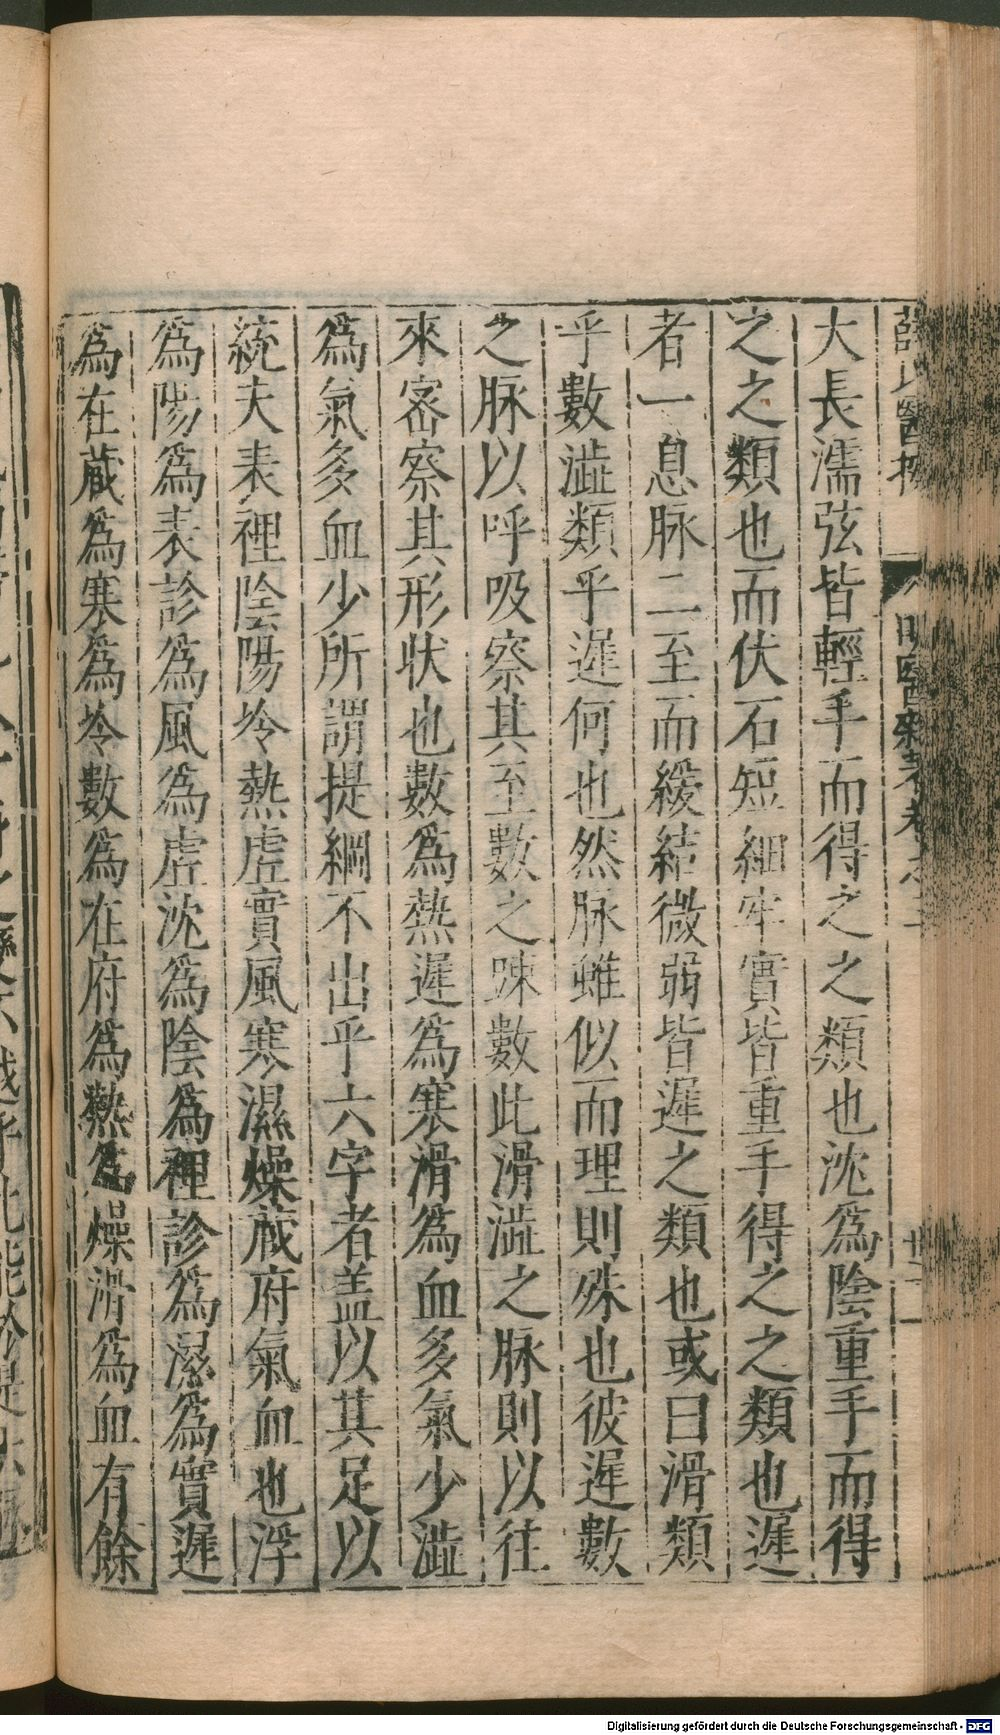 大長濡弦皆輕手而得之之類也沈爲陰重手而得
之之類也而伏石短細牢實皆重手得之之類也遲
者一息脉二至而緩結微弱皆遲之類也或曰滑類
乎數澁類乎遲何也然脉雖似而理則殊也彼遲數
之脉以呼吸察其至數之踈數此滑澁之脉則以往
來宻察其形状也數爲熱遲爲寒滑爲血多氣少澁
爲氣多血少所謂提綱不出乎六字者盖以其足以
統夫表裡陰陽冷熱虛實風寒濕燥藏府氣血也浮
爲陽爲表診爲風爲虛沈爲陰爲裡診爲濕爲實遲
爲在藏爲寒爲冷數爲在府爲熱爲燥滑爲血有餘
Digitalisierung gefördert durch die Deutsche Forschungsgemeinschaft - DFG